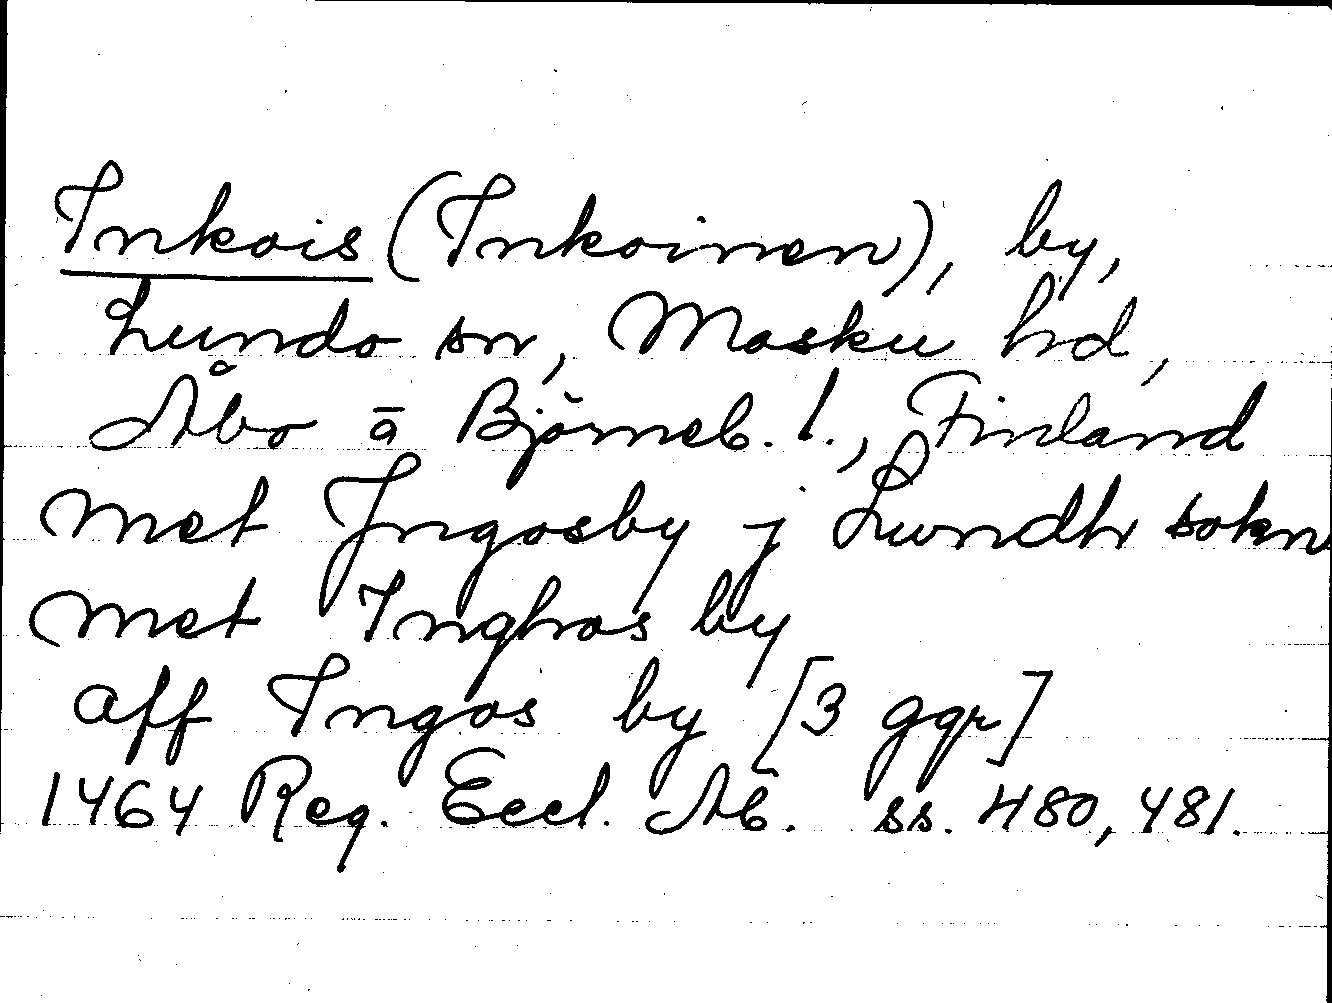 Inkois (Inkoinen), by,
Lundo sn, Masku hd,
Åbo ā Björneb. l., Finland
met Jngosby j Lwndh sokn
met Inghos by
aff Ingos by [3 ggr]
1464 Reg. Eccl. Ab. ss. 480, 481.